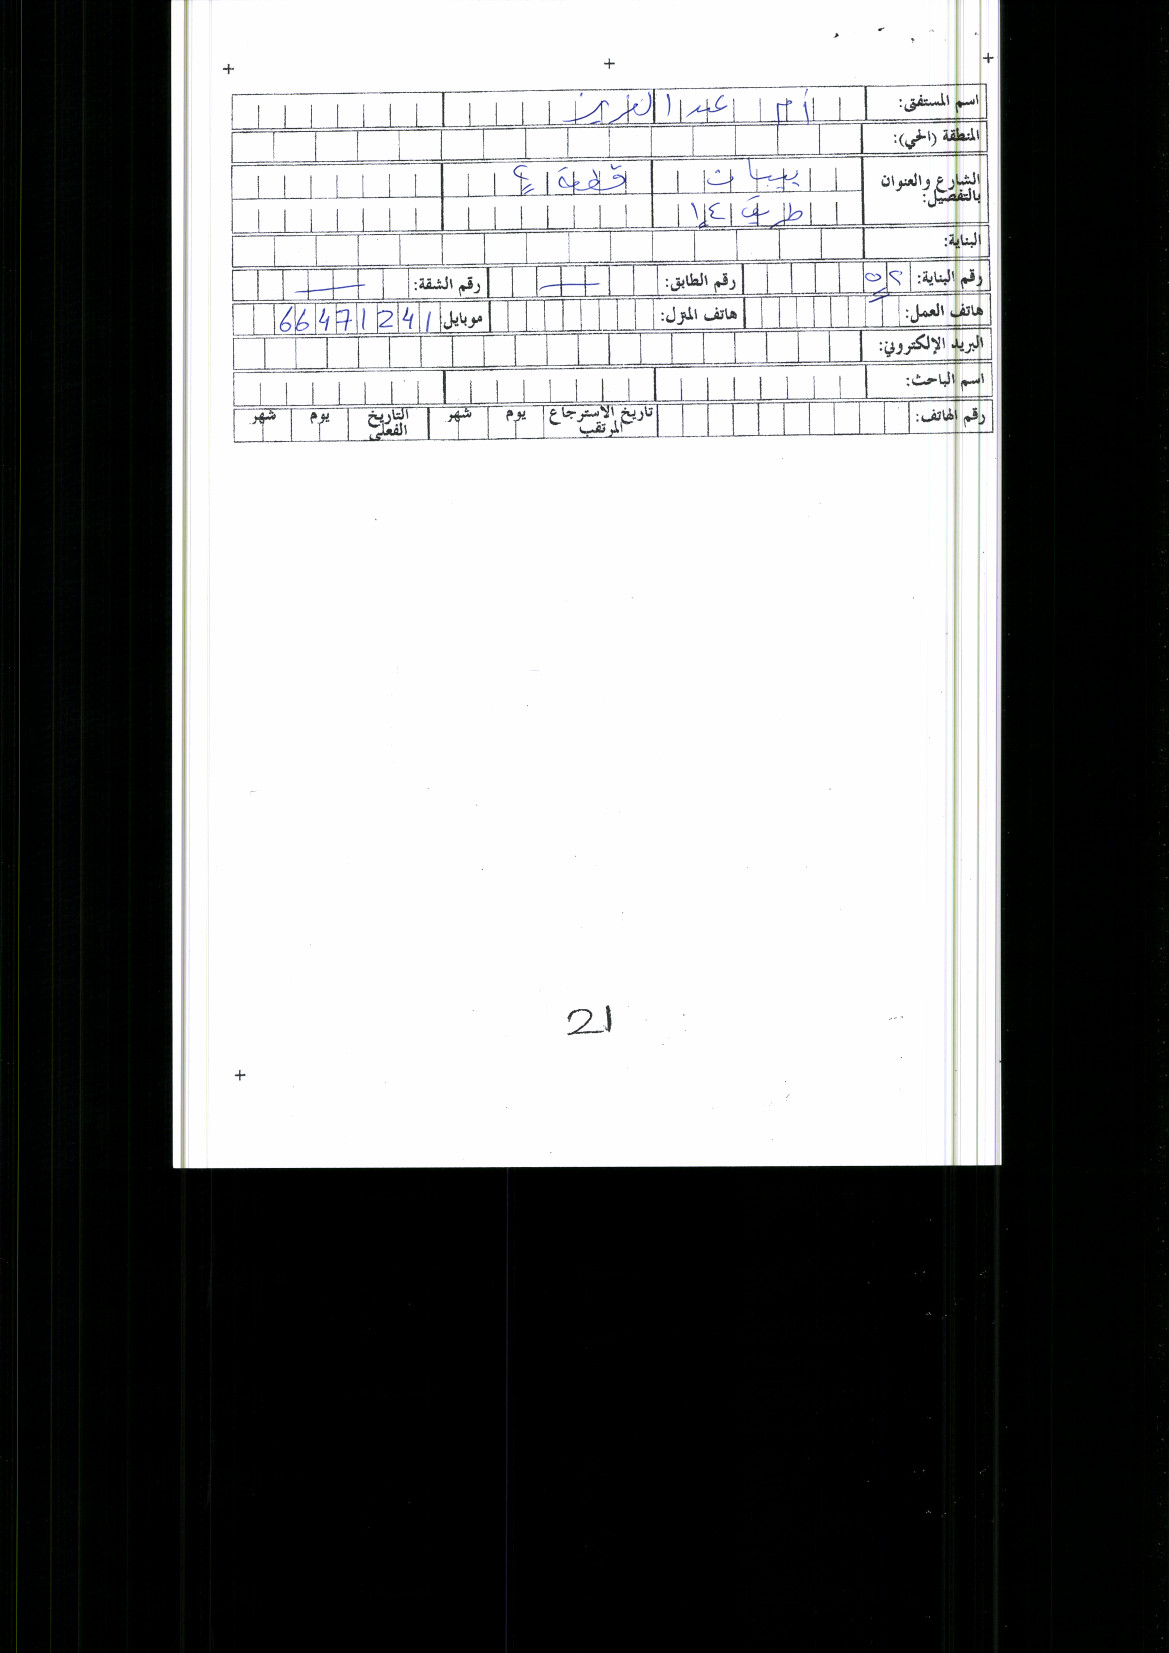 اسم المستفتى: أم عبد العزيز
المنطقة (الحي):
الشارع والعنوان بالتفصيل: بيبات قطعة ٤
طريق ١٤
البناية:
رقم البناية: ٥٢ رقم الطابق: — رقم الشقة: —
هاتف العمل: هاتف المنزل: موبايل 66471241
البريد الإلكتروني:
اسم الباحث:
رقم الهاتف: تاريخ الاسترجاع المرتقب يوم شهر التاريخ الفعلي يوم شهر
21